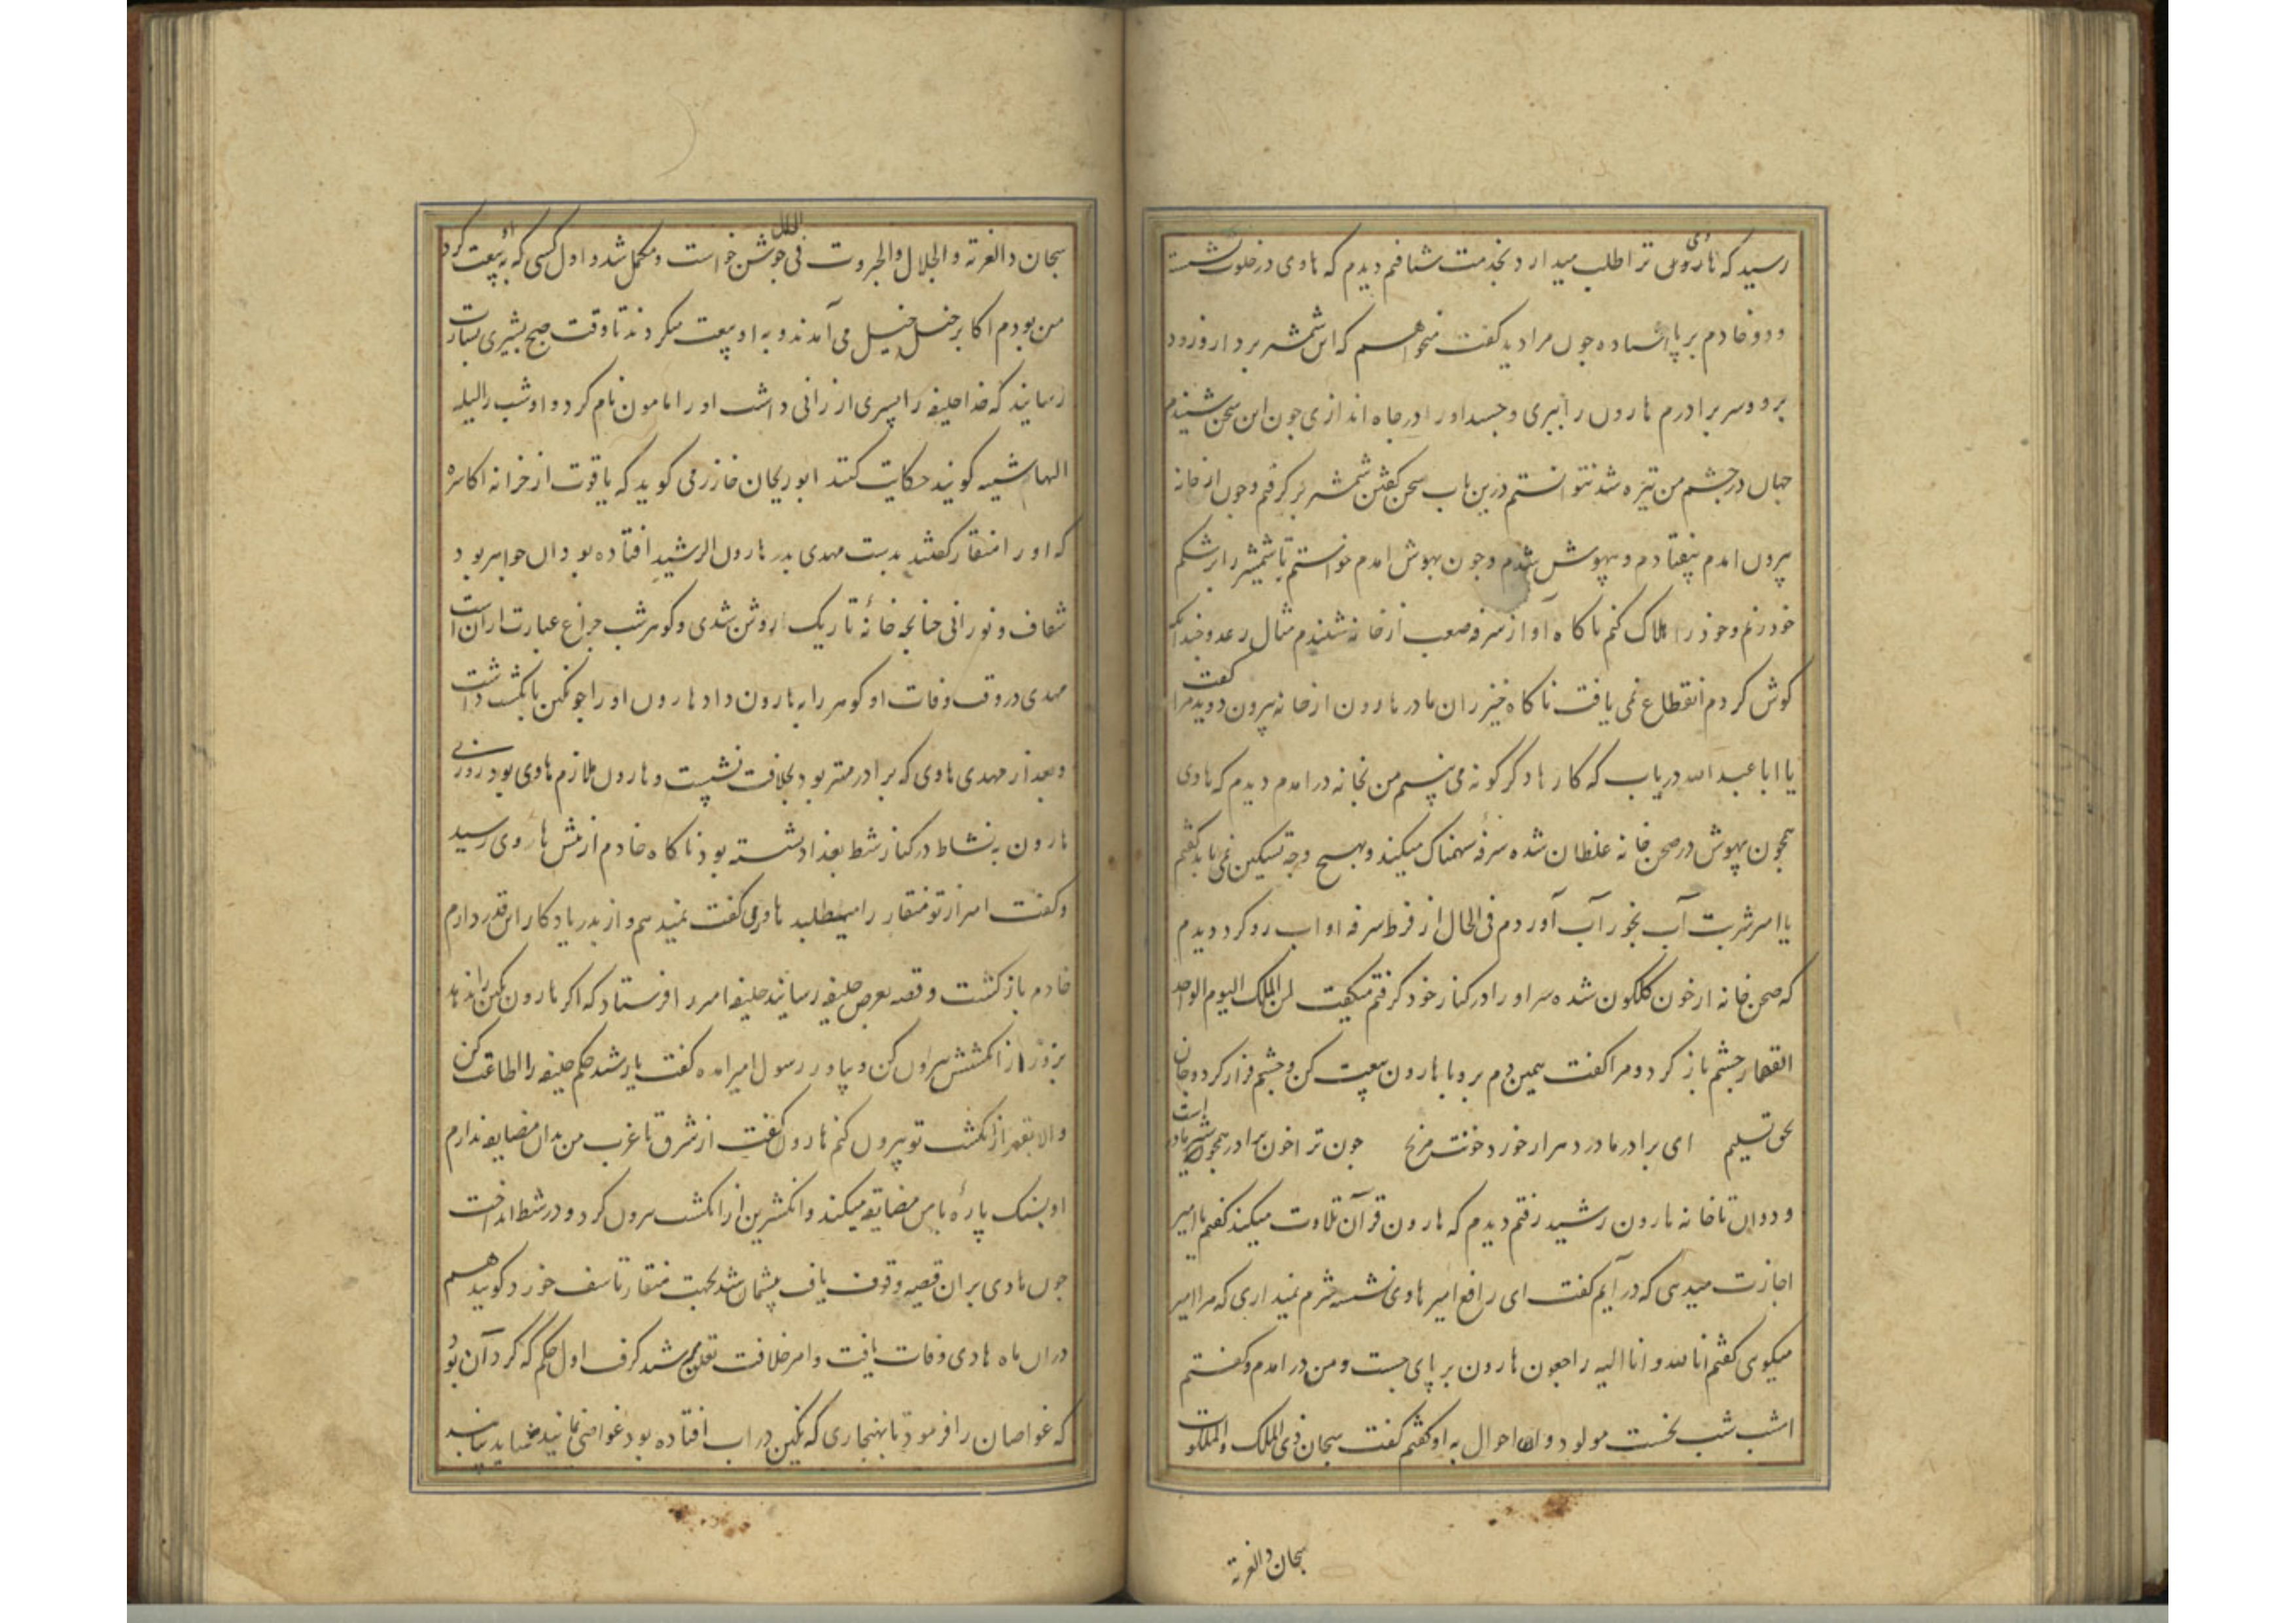 رسید که هارون ترا طلب میدارد بخدمت شتافتم دیدم که هادی در خلوت نشسته
و دو خادم بر پا ایستاده چون مرا دید گفت میخواهم که این شمشیر برداری و زود
بروی و سر برادرم هارون را ببری و جسد او را در چاه اندازی چون این سخن شنیدم
جهان در چشم من تیره شد نتوانستم درین باب سخن گفتن شمشیر برگرفتم و چون از خانه
بیرون آمدم بیفتادم و بیهوش شدم و چون بهوش آمدم خواستم تا شمشیر را بر شکم
خود زنم و خود را هلاک کنم ناگاه آواز سرفه صعب از خانه شنیدم مثال رعد و چندانکه
گوش کردم انقطاع نمی یافت ناگاه خیزران مادر هارون از خانه بیرون دوید مرا گفت
یا ابا عبد الله دریاب که کارها دگرگونه می بینم من بخانه در آمدم دیدم که هادی
همچون بیهوش در صحن خانه غلطان شده سرفه سهمناک میکند و بهیچ وجه تسکین نمی یابد گفتم
یا امیر شربت آب بخور آب آوردم فی الحال از فرط سرفه او آب رد کرد دیدم
که صحن خانه از خون گلگون شده سر او را در کنار خود گرفتم میگفت لمن الملک الیوم الواحد
القهار چشم باز کرد و مرا گفت همین دم برو با هارون بیعت کن و چشم فراز کرد و جان
بحق تسلیم ای برادر مادر دهر ار خورد خونت مرنج چون ترا خون برادر همچو شیر مادر است
و دوان تا خانه هارون رشید رفتم دیدم که هارون قرآن تلاوت میکند گفتم یا امیر
اجازت میدهی که در آیم گفت ای رافع امیر هادی نشسته شرم نمیداری که مرا امیر
میگوی گفتم انا لله و انا الیه راجعون هارون بر پای جست و من در آمدم و گفتم
امشب شب نخست مولود و احوال به او گفتم گفت سبحان ذی الملک والملکوت
سبحان ذالعزة
سبحان ذالعزة والجلال والجبروت فی الحال جوشن خواست و مکمل شد و اول کسی که به او بیعت کرد
من بودم اکابر خیل خیل می آمدند و به او بیعت میکردند تا وقت صبح بشیری بشارت
رسانید که خدا خلیفه را پسری ارزانی داشت او را مامون نام کرد و او شب را لیله
الهاشمیه گویند حکایت کنند ابوریحان خازن می گوید که یاقوت از خزانه اکاسره
که او را منقار گفتند بدست مهدی پدر هارون الرشید افتاده بود و آن جواهر بود
شفاف و نورانی چنانچه خانه تاریک ازو روشن شدی و گوهر شب چراغ عبارت از آن است
مهدی در وقت وفات او گوهر را به هارون داد هارون او را چو نگین بانگشت داشت
و بعد از مهدی هادی که برادر مهتر بود بخلافت نشست و هارون ملازم هادی بود روزی
هارون به نشاط در کنار شط بغداد نشسته بود ناگاه خادم از پیش هادی رسید
و گفت امیر از تو منقار را میطلبد هارون گفت نمیدهم و از پدر یادگار این قدر دارم
خادم باز گشت و قصه بعرض خلیفه رسانید خلیفه امیر را فرستاد که اگر هارون نگین را ندهد
بزور از انگشتش بیرون کن و بیاور رسول امیر آمده گفت یا رشید حکم خلیفه را اطاعت کن
والا بقهر از انگشت تو بیرون کنم هارون گفت از شرق تا غرب من بدان مضایقه ندارم
او بسنگ پاره با من مضایقه میکند و انگشترین از انگشت بیرون کرد و در شط انداخت
چون هادی بر آن قصه وقوف یافت پشیمان شد بجهت منقار تاسف خورد گویند هم
در آن ماه هادی وفات یافت و امر خلافت تعلق برشید گرفت اول حکم که کرد آن بود
که غواصان را فرمود تا بهنجاری که نگین در آب افتاده بود غواصی نمایند شاید بیابند